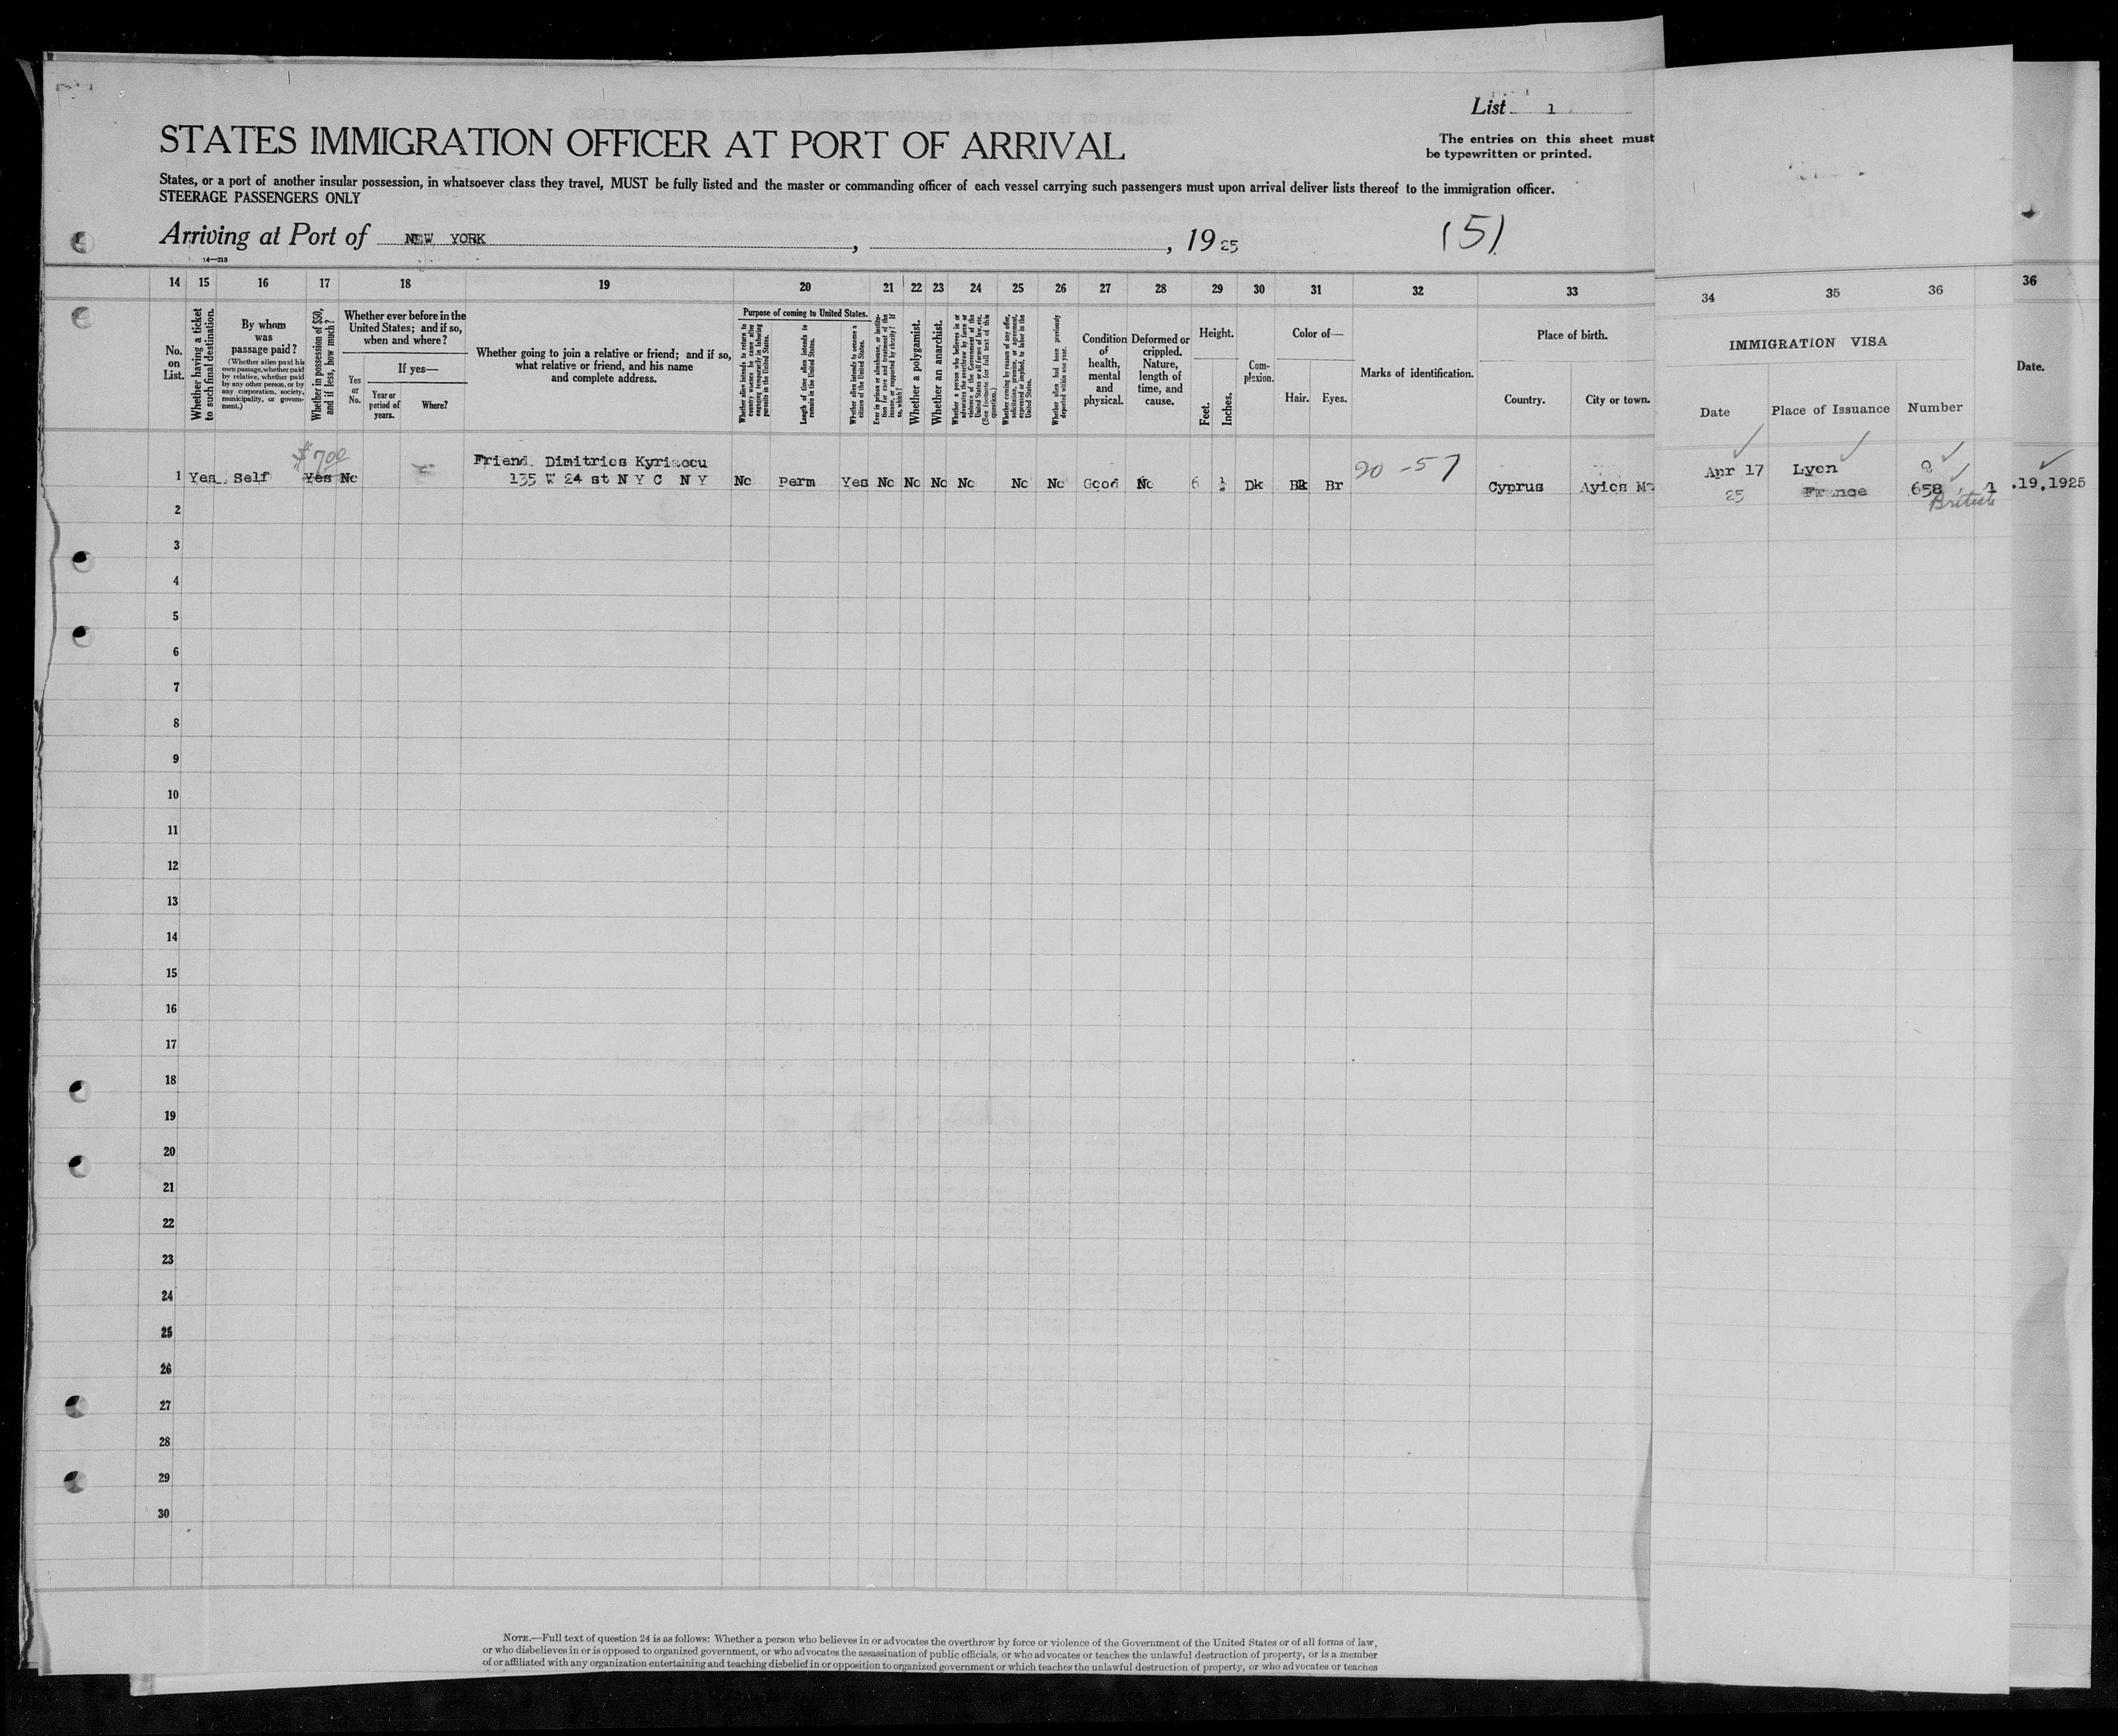 List 1
STATES IMMIGRATION OFFICER AT PORT OF ARRIVAL
The entries on this sheet must
be typewritten or printed.
States, or a port of another insular possession, in whatsoever class they travel, MUST be fully listed and the master or commanding officer of each vessel carrying such passengers must upon arrival deliver lists thereof to the immigration officer.
STEERAGE PASSENGERS ONLY
Arriving at Port of NEW YORK, , 1925
(5)
14—213
14 15 16 17 18 19 20 21 22 23 24 25 26 27 28 29 30 31 32 33 34 35 36 36
No. on List.
Whether having a ticket to such final destination.
By whom was passage paid?
(Whether alien paid his own passage, whether paid by relative, whether paid by any other person, or by any corporation, society, municipality, or government.)
Whether in possession of $50, and if less, how much?
Whether ever before in the United States; and if so, when and where?
Yes or No.
If yes—
Year or period of years.
Where?
Whether going to join a relative or friend; and if so, what relative or friend, and his name and complete address.
Purpose of coming to United States.
Whether alien intends to return to country whence he came after engaging temporarily in laboring pursuits in the United States.
Length of time alien intends to remain in the United States.
Whether alien intends to become a citizen of the United States.
Ever in prison or almshouse, or institution for care and treatment of the insane, or supported by charity? If so, which?
Whether a polygamist.
Whether an anarchist.
Whether a person who believes in or advocates the overthrow by force or violence of the Government of the United States or all forms of law, etc. (See footnote for full text of this question.)
Whether coming by reason of any offer, solicitation, promise, or agreement, expressed or implied, to labor in the United States.
Whether alien had been previously deported within one year.
Condition of health, mental and physical.
Deformed or crippled. Nature, length of time, and cause.
Height.
Feet.
Inches.
Complexion.
Color of—
Hair.
Eyes.
Marks of identification.
Place of birth.
Country.
City or town.
IMMIGRATION VISA
Date
Place of Issuance
Number
Date.
$700
Friend Dimitrios Kyriacou
1 Yes Self Yes No 135 W 24 st N Y C N Y No Perm Yes No No No No No No Good No 6 ½ Dk Bk Br 20-57 Cyprus Ayios
Apr 17 25 Lyon France 658 British
.19,1925
2
3
4
5
6
7
8
9
10
11
12
13
14
15
16
17
18
19
20
21
22
23
24
25
26
27
28
29
30
NOTE.—Full text of question 24 is as follows: Whether a person who believes in or advocates the overthrow by force or violence of the Government of the United States or of all forms of law,
or who disbelieves in or is opposed to organized government, or who advocates the assassination of public officials, or who advocates or teaches the unlawful destruction of property, or is a member
of or affiliated with any organization entertaining and teaching disbelief in or opposition to organized government or which teaches the unlawful destruction of property, or who advocates or teaches